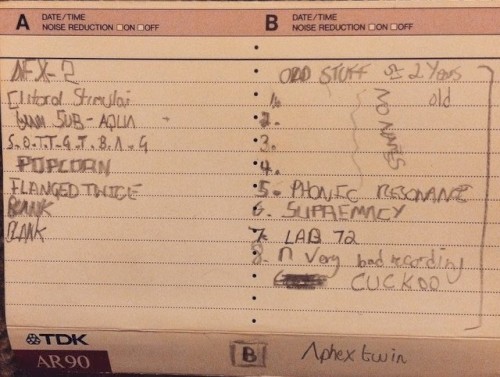 A DATE/TIME
NOISE REDUCTION ON OFF
B DATE/TIME
NOISE REDUCTION ON OFF
AFX-2
Clitoral Stimulai
SUB-AQUA
S.O.T.T.G.T.B.A.G
POPCORN
FLANGED TWICE
BLANK
BLANK
OLD STUFF 2 Years
old
1.
2.
3.
4.
NO NAMES
5. PHONIC RESONANCE
6. SUPREMACY
7. LAB 72
8. A Very bad recording
CUCKOO
TDK
AR90
B Aphex twin